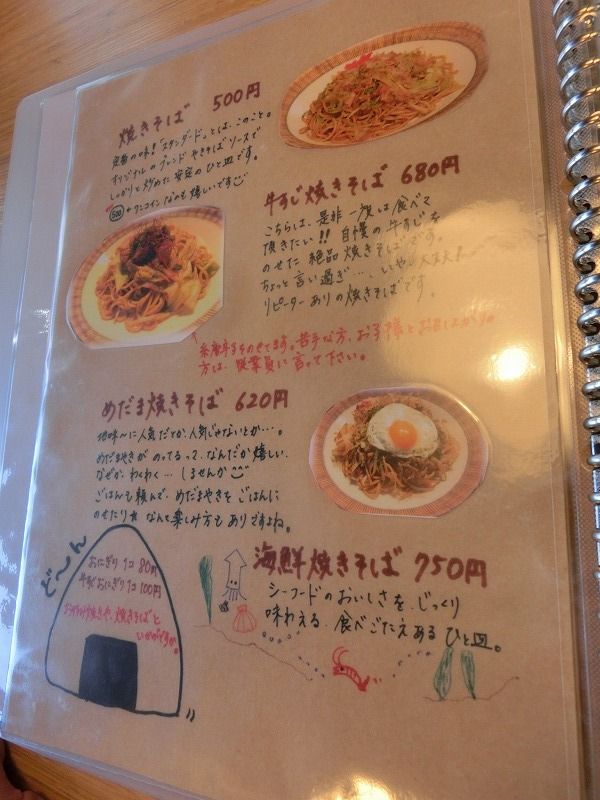 焼きそば 500円
定番の味！「スタンダード」とは、このこと。
オリジナルのブレンドやきそばソースで
しっかりと炒めた安定のひと皿です。
500 ←ワンコインなのも嬉しいです
牛すじ焼きそば 680円
こちらは、是非一度は食べて
頂きたい!! 自慢の牛すじを
のせた絶品焼きそばです。
ちょっと言い過ぎ…、いやいや大丈夫!
リピーターありの焼きそばです。
糸唐辛子をのせてます。苦手な方、お子様とお召し上がりの
方は、従業員に言って下さい。
めだま焼きそば 620円
地味〜に人気だとか、人気じゃないとか…。
めだまやきがのってるって、なんだか嬉しい、
なぜか、わくわく…しませんか
ごはんも頼んで、めだまやきをごはんに
のせたり☆なんて楽しみ方もありですよね。
ど〜ん
おにぎり 1コ 80円
牛すじおにぎり 1コ 100円
お好み焼きや、焼きそばと
いかがですか。
海鮮焼きそば 750円
シーフードのおいしさを、じっくり
味わえる、食べごたえあるひと皿。